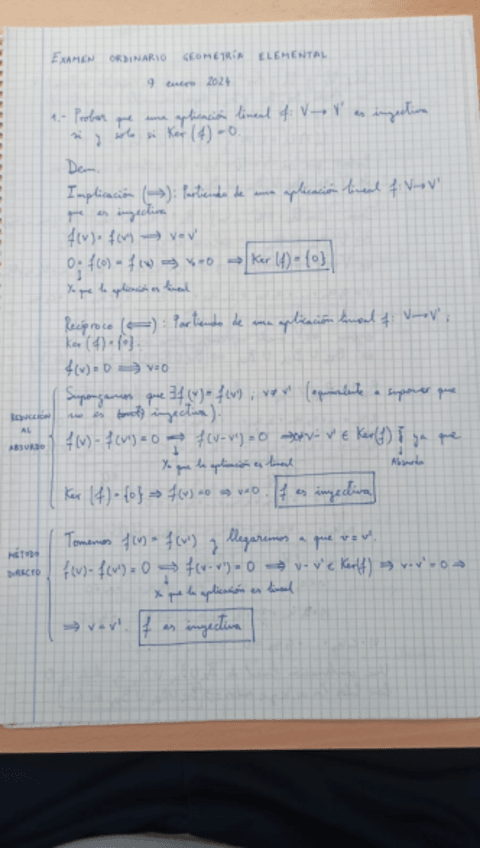 EXAMEN ORDINARIO GEOMETRÍA ELEMENTAL
9 enero 2024
1.- Probar que una aplicación lineal f: V → V' es inyectiva
si y solo si Ker(f) = 0.
Dem.
Implicación (⟹): Partiendo de una aplicación lineal f: V → V'
que es inyectiva
f(v) = f(v') ⟹ v = v'
0 = f(0) = f(v₀) ⟹ v₀ = 0 ⟹ Ker(f) = {0}
↓
Ya que la aplicación es lineal
Recíproco (⟸): Partiendo de una aplicación lineal f: V → V',
Ker(f) = {0}.
f(v) = 0 ⟹ v = 0
REDUCCIÓN AL ABSURDO
Supongamos que ∃ f(v) = f(v'), v ≠ v' (equivalente a suponer que
no es inyectiva).
f(v) - f(v') = 0 ⟹ f(v-v') = 0 ⟹ v-v' ∈ Ker(f) ya que
↓
Ya que la aplicación es lineal
↓
Absurdo
Ker(f) = {0} ⟹ f(v) = 0 ⟹ v = 0. f es inyectiva
MÉTODO DIRECTO
Tomemos f(v) = f(v') y llegaremos a que v = v'.
f(v) - f(v') = 0 ⟹ f(v-v') = 0 ⟹ v-v' ∈ Ker(f) ⟹ v-v' = 0 ⟹
↓
Ya que la aplicación es lineal
⟹ v = v'. f es inyectiva